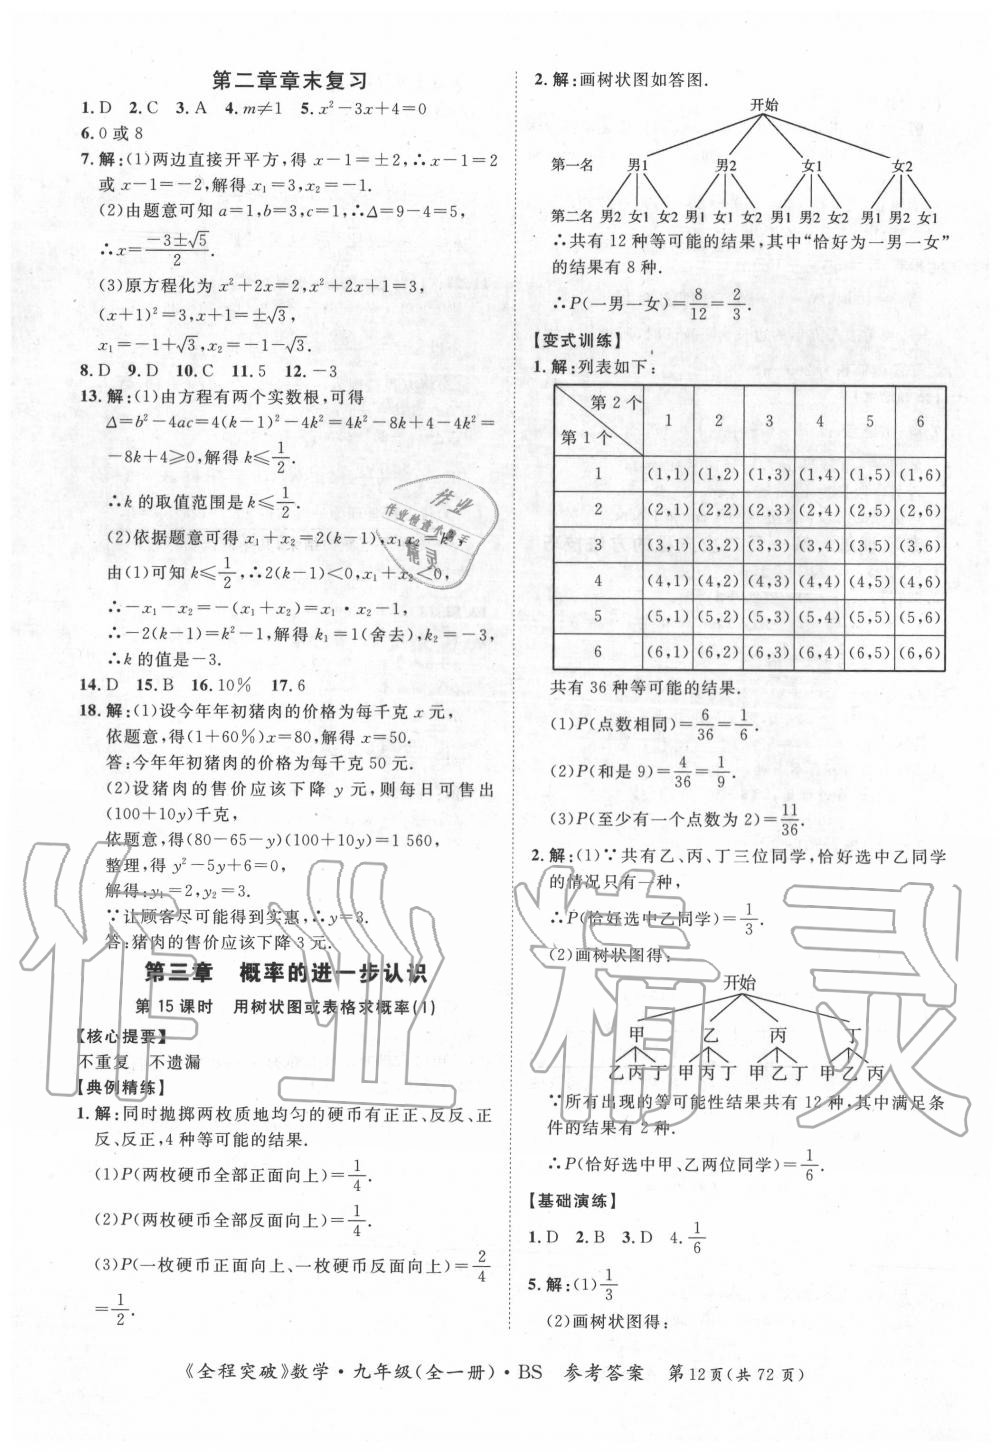 第二章章末复习
1.D 2.C 3.A 4.m≠1 5.x²-3x+4=0
6.0或8
7.解:(1)两边直接开平方,得 x-1=±2,∴x-1=2
或 x-1=-2,解得 x₁=3,x₂=-1.
(2)由题意可知 a=1,b=3,c=1,∴Δ=9-4=5,
∴x=(-3±√5)/2.
(3)原方程化为 x²+2x=2,x²+2x+1=3,
(x+1)²=3,x+1=±√3,
x₁=-1+√3,x₂=-1-√3.
8.D 9.D 10.C 11.5 12.-3
13.解:(1)由方程有两个实数根,可得
Δ=b²-4ac=4(k-1)²-4k²=4k²-8k+4-4k²=
-8k+4≥0,解得 k≤1/2.
∴k 的取值范围是 k≤1/2.
(2)依据题意可得 x₁+x₂=2(k-1),x₁x₂=k²,
由(1)可知 k≤1/2,∴2(k-1)<0,x₁+x₂<0,
∴-x₁-x₂=-(x₁+x₂)=x₁·x₂-1,
∴-2(k-1)=k²-1,解得 k₁=1(舍去),k₂=-3,
∴k 的值是-3.
14.D 15.B 16.10% 17.6
18.解:(1)设今年年初猪肉的价格为每千克 x 元,
依题意,得(1+60%)x=80,解得 x=50.
答:今年年初猪肉的价格为每千克 50 元.
(2)设猪肉的售价应该下降 y 元,则每日可售出
(100+10y)千克,
依题意,得(80-65-y)(100+10y)=1 560,
整理,得 y²-5y+6=0,
解得:y₁=2,y₂=3.
∵让顾客尽可能得到实惠,∴y=3.
答:猪肉的售价应该下降 3 元.
第三章 概率的进一步认识
第 15 课时 用树状图或表格求概率(1)
【核心提要】
不重复 不遗漏
【典例精练】
1.解:同时抛掷两枚质地均匀的硬币有正正、反反、正
反、反正,4 种等可能的结果.
(1)P(两枚硬币全部正面向上)=1/4.
(2)P(两枚硬币全部反面向上)=1/4.
(3)P(一枚硬币正面向上、一枚硬币反面向上)=2/4
=1/2.
2.解:画树状图如答图.
开始
第一名 男1 男2 女1 女2
第二名 男2 女1 女2 男1 女1 女2 男1 男2 女2 男1 男2 女1
∴共有 12 种等可能的结果,其中“恰好为一男一女”
的结果有 8 种.
∴P(一男一女)=8/12=2/3.
【变式训练】
1.解:列表如下:
第 2 个 1 2 3 4 5 6
第 1 个
1 (1,1) (1,2) (1,3) (1,4) (1,5) (1,6)
2 (2,1) (2,2) (2,3) (2,4) (2,5) (2,6)
3 (3,1) (3,2) (3,3) (3,4) (3,5) (3,6)
4 (4,1) (4,2) (4,3) (4,4) (4,5) (4,6)
5 (5,1) (5,2) (5,3) (5,4) (5,5) (5,6)
6 (6,1) (6,2) (6,3) (6,4) (6,5) (6,6)
共有 36 种等可能的结果.
(1)P(点数相同)=6/36=1/6.
(2)P(和是 9)=4/36=1/9.
(3)P(至少有一个点数为 2)=11/36.
2.解:(1)∵共有乙、丙、丁三位同学,恰好选中乙同学
的情况只有一种,
∴P(恰好选中乙同学)=1/3.
(2)画树状图得:
开始
甲 乙 丙 丁
乙 丙 丁 甲 丙 丁 甲 乙 丁 甲 乙 丙
∵所有出现的等可能性结果共有 12 种,其中满足条
件的结果有 2 种.
∴P(恰好选中甲、乙两位同学)=1/6.
【基础演练】
1.D 2.B 3.D 4.1/6
5.解:(1)1/3
(2)画树状图得:
《全程突破》数学·九年级(全一册)·BS 参考答案 第12页(共 72 页)
作业精灵
作业
作业检查小帮手
精灵